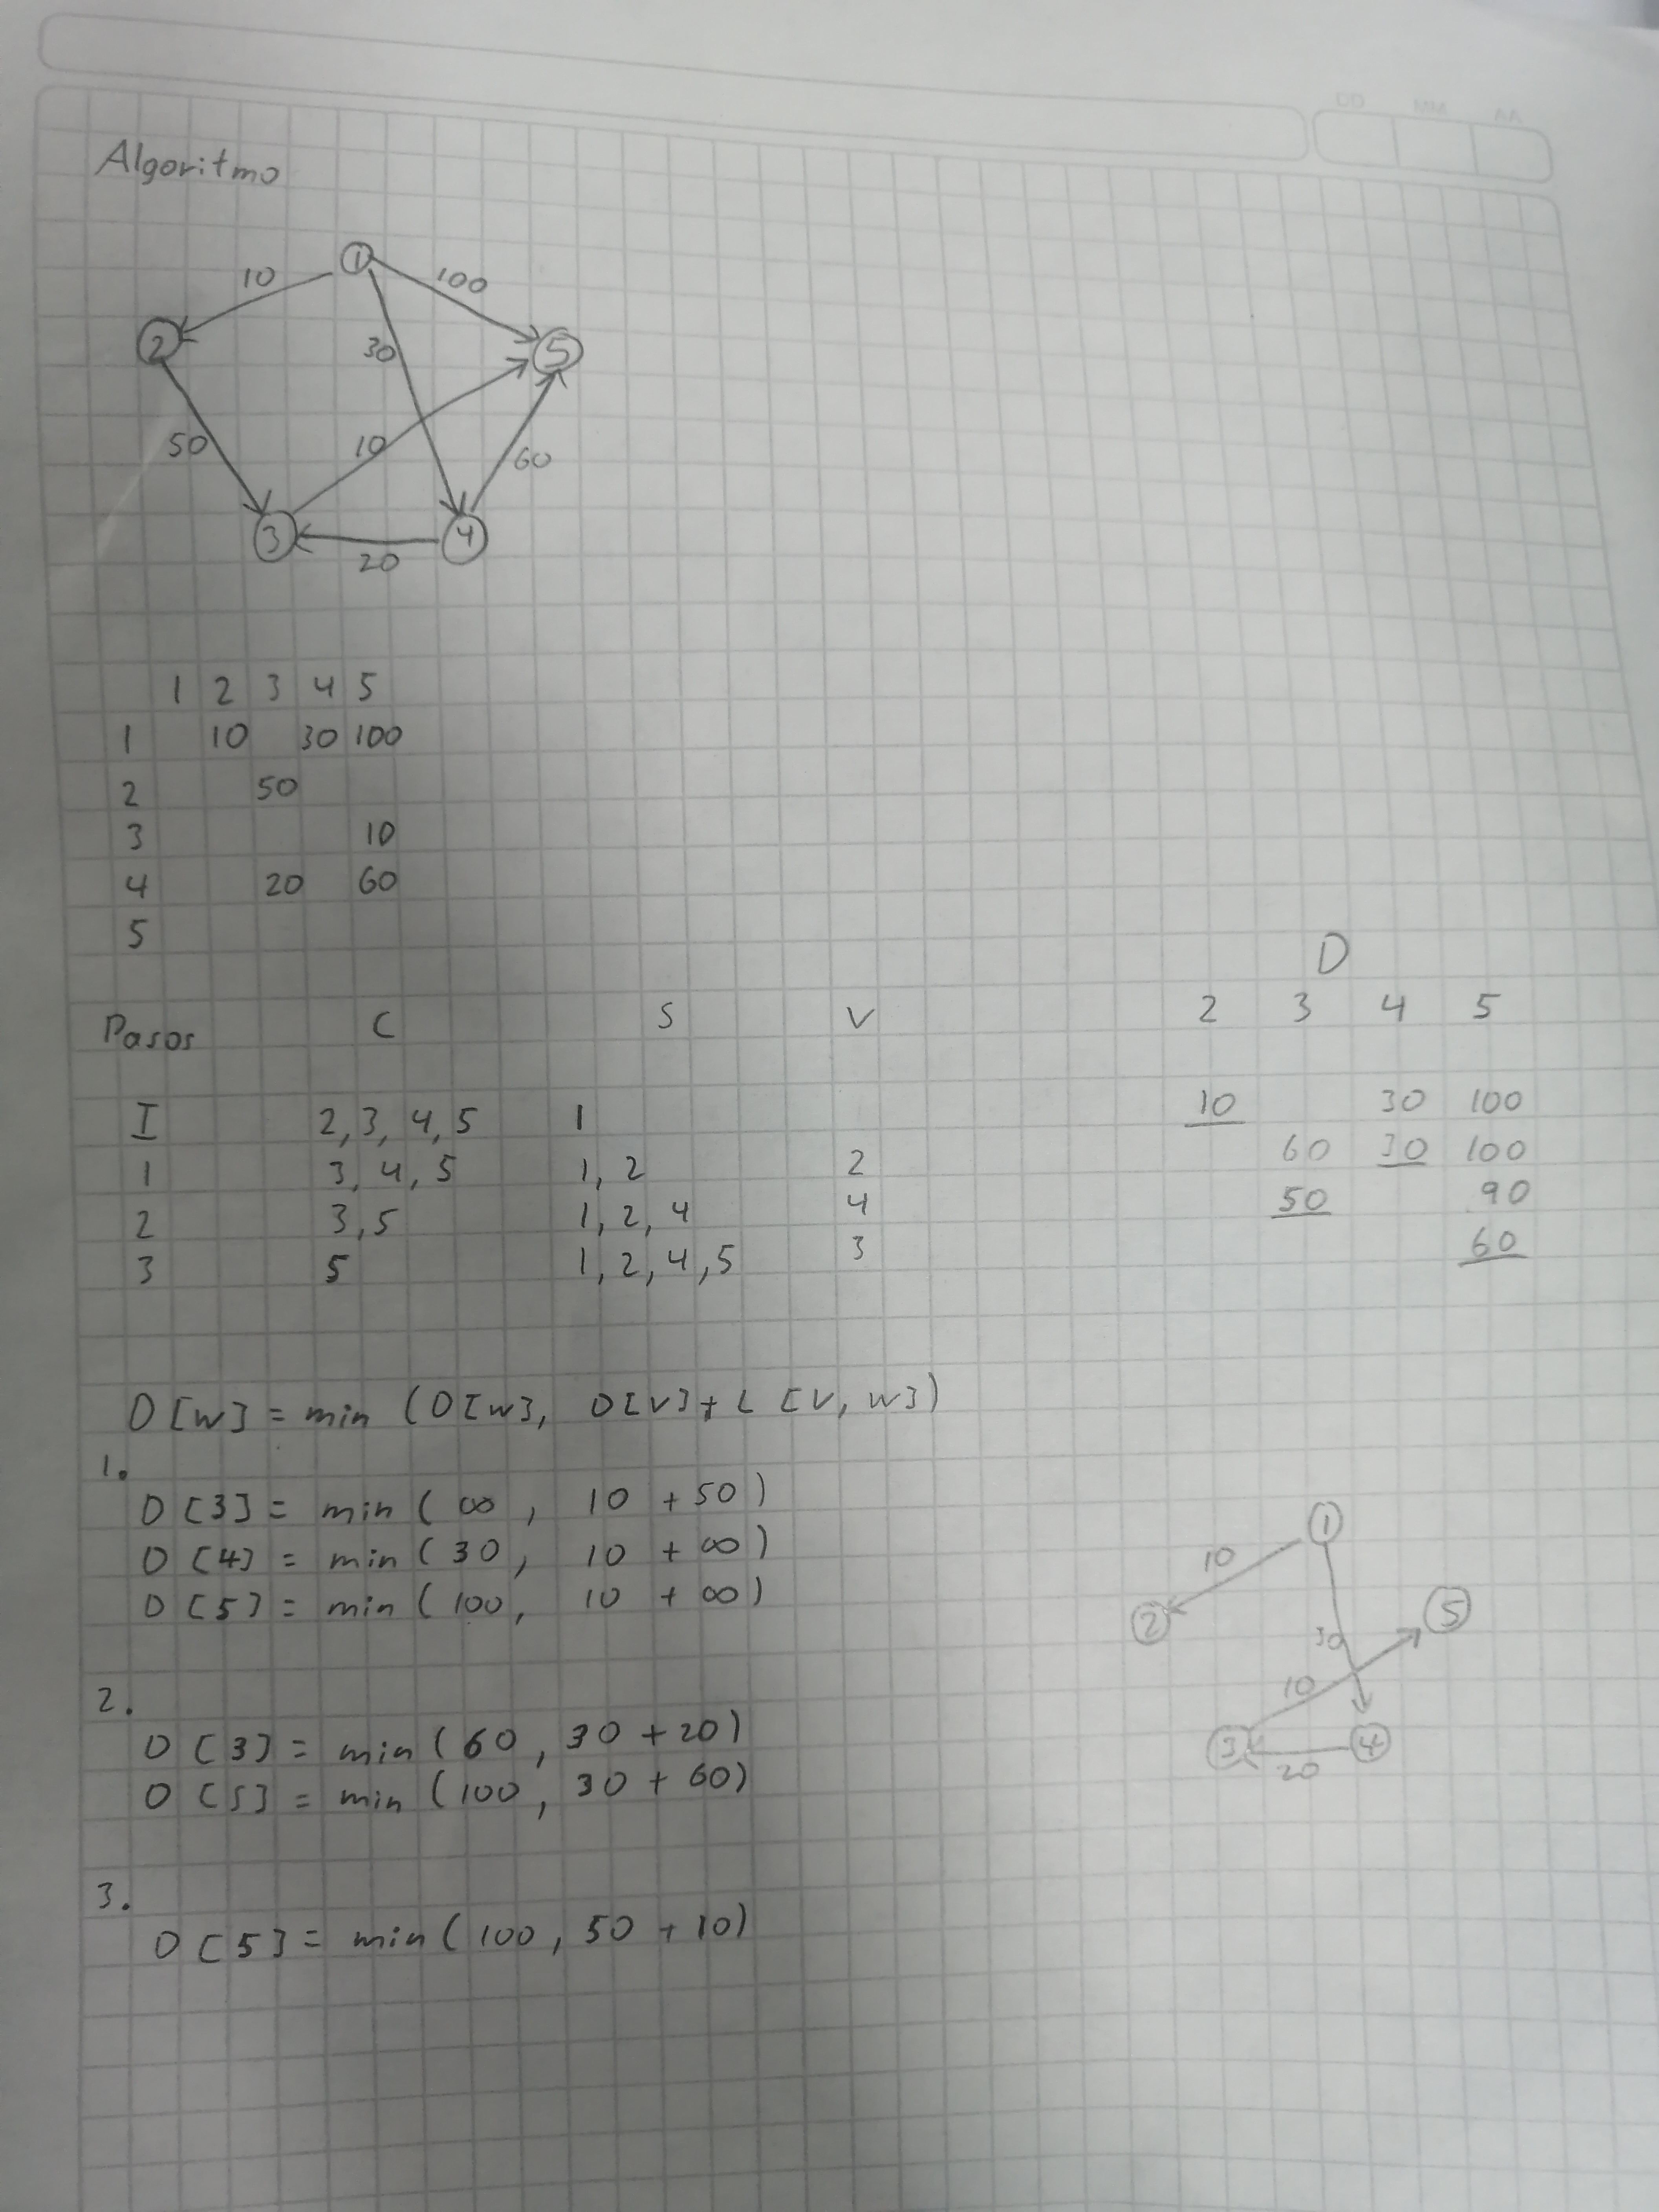 DD MM AA
Algoritmo
1
10 100
2 30 5
50 10 60
3 4
20
1 2 3 4 5
1 10 30 100
2 50
3 10
4 20 60
5
D
Pasos C S V 2 3 4 5
I 2, 3, 4, 5 1 10 30 100
1 3, 4, 5 1, 2 2 60 30 100
2 3, 5 1, 2, 4 4 50 90
3 5 1, 2, 4, 5 3 60
D[w] = min (D[w], D[V] + L [V, w])
1.
D[3] = min ( ∞ , 10 + 50)
D[4] = min ( 30, 10 + ∞)
D[5] = min ( 100, 10 + ∞)
1
10
2 5
30
10
3 4
20
2.
D[3] = min ( 60, 30 + 20)
D[5] = min (100, 30 + 60)
3.
D[5] = min ( 100, 50 + 10)